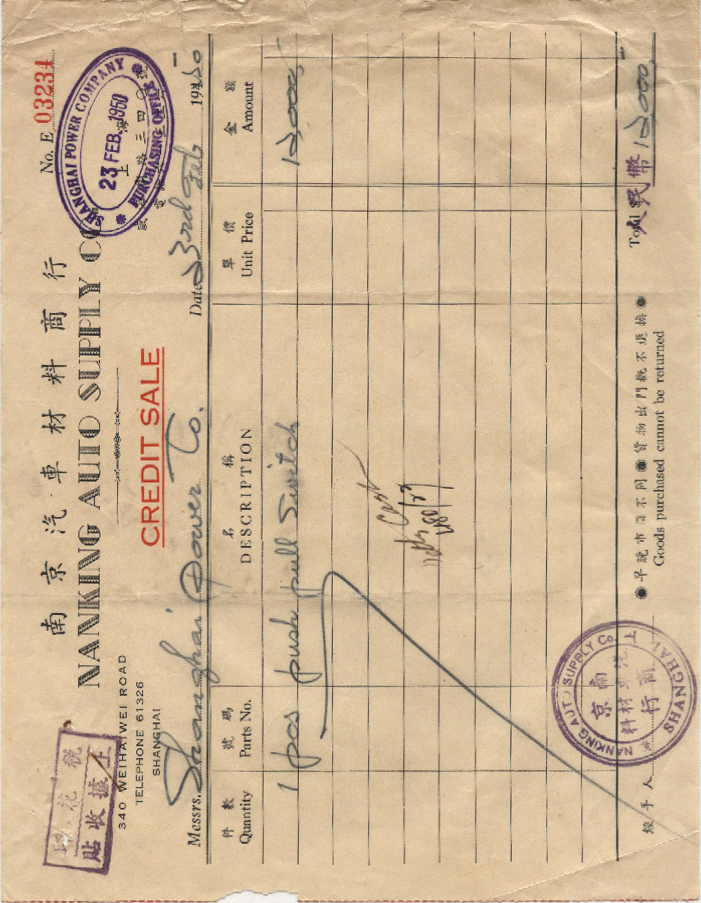 No. E 03234
南京汽車材料商行
NANKING AUTO SUPPLY CO.
340 WEIHAIWEI ROAD
TELEPHONE 61326
SHANGHAI
印花稅
貼收據上
SHANGHAI POWER COMPANY
23 FEB. 1950
PURCHASING OFFICE
CREDIT SALE
Messrs. Shanghai Power Co. Date 23rd Feb 1950
件數 號碼 名稱 單價 金額
Quantity Parts No. DESCRIPTION Unit Price Amount
1 pcs push pull switch 12,000
Cash
早晚市價不同 貨物出門概不退換
Goods purchased cannot be returned
Total 人民幣 12,000
經手人
NANKING AUTO SUPPLY Co.
上海
南京
汽車材料
商行
SHANGHAI